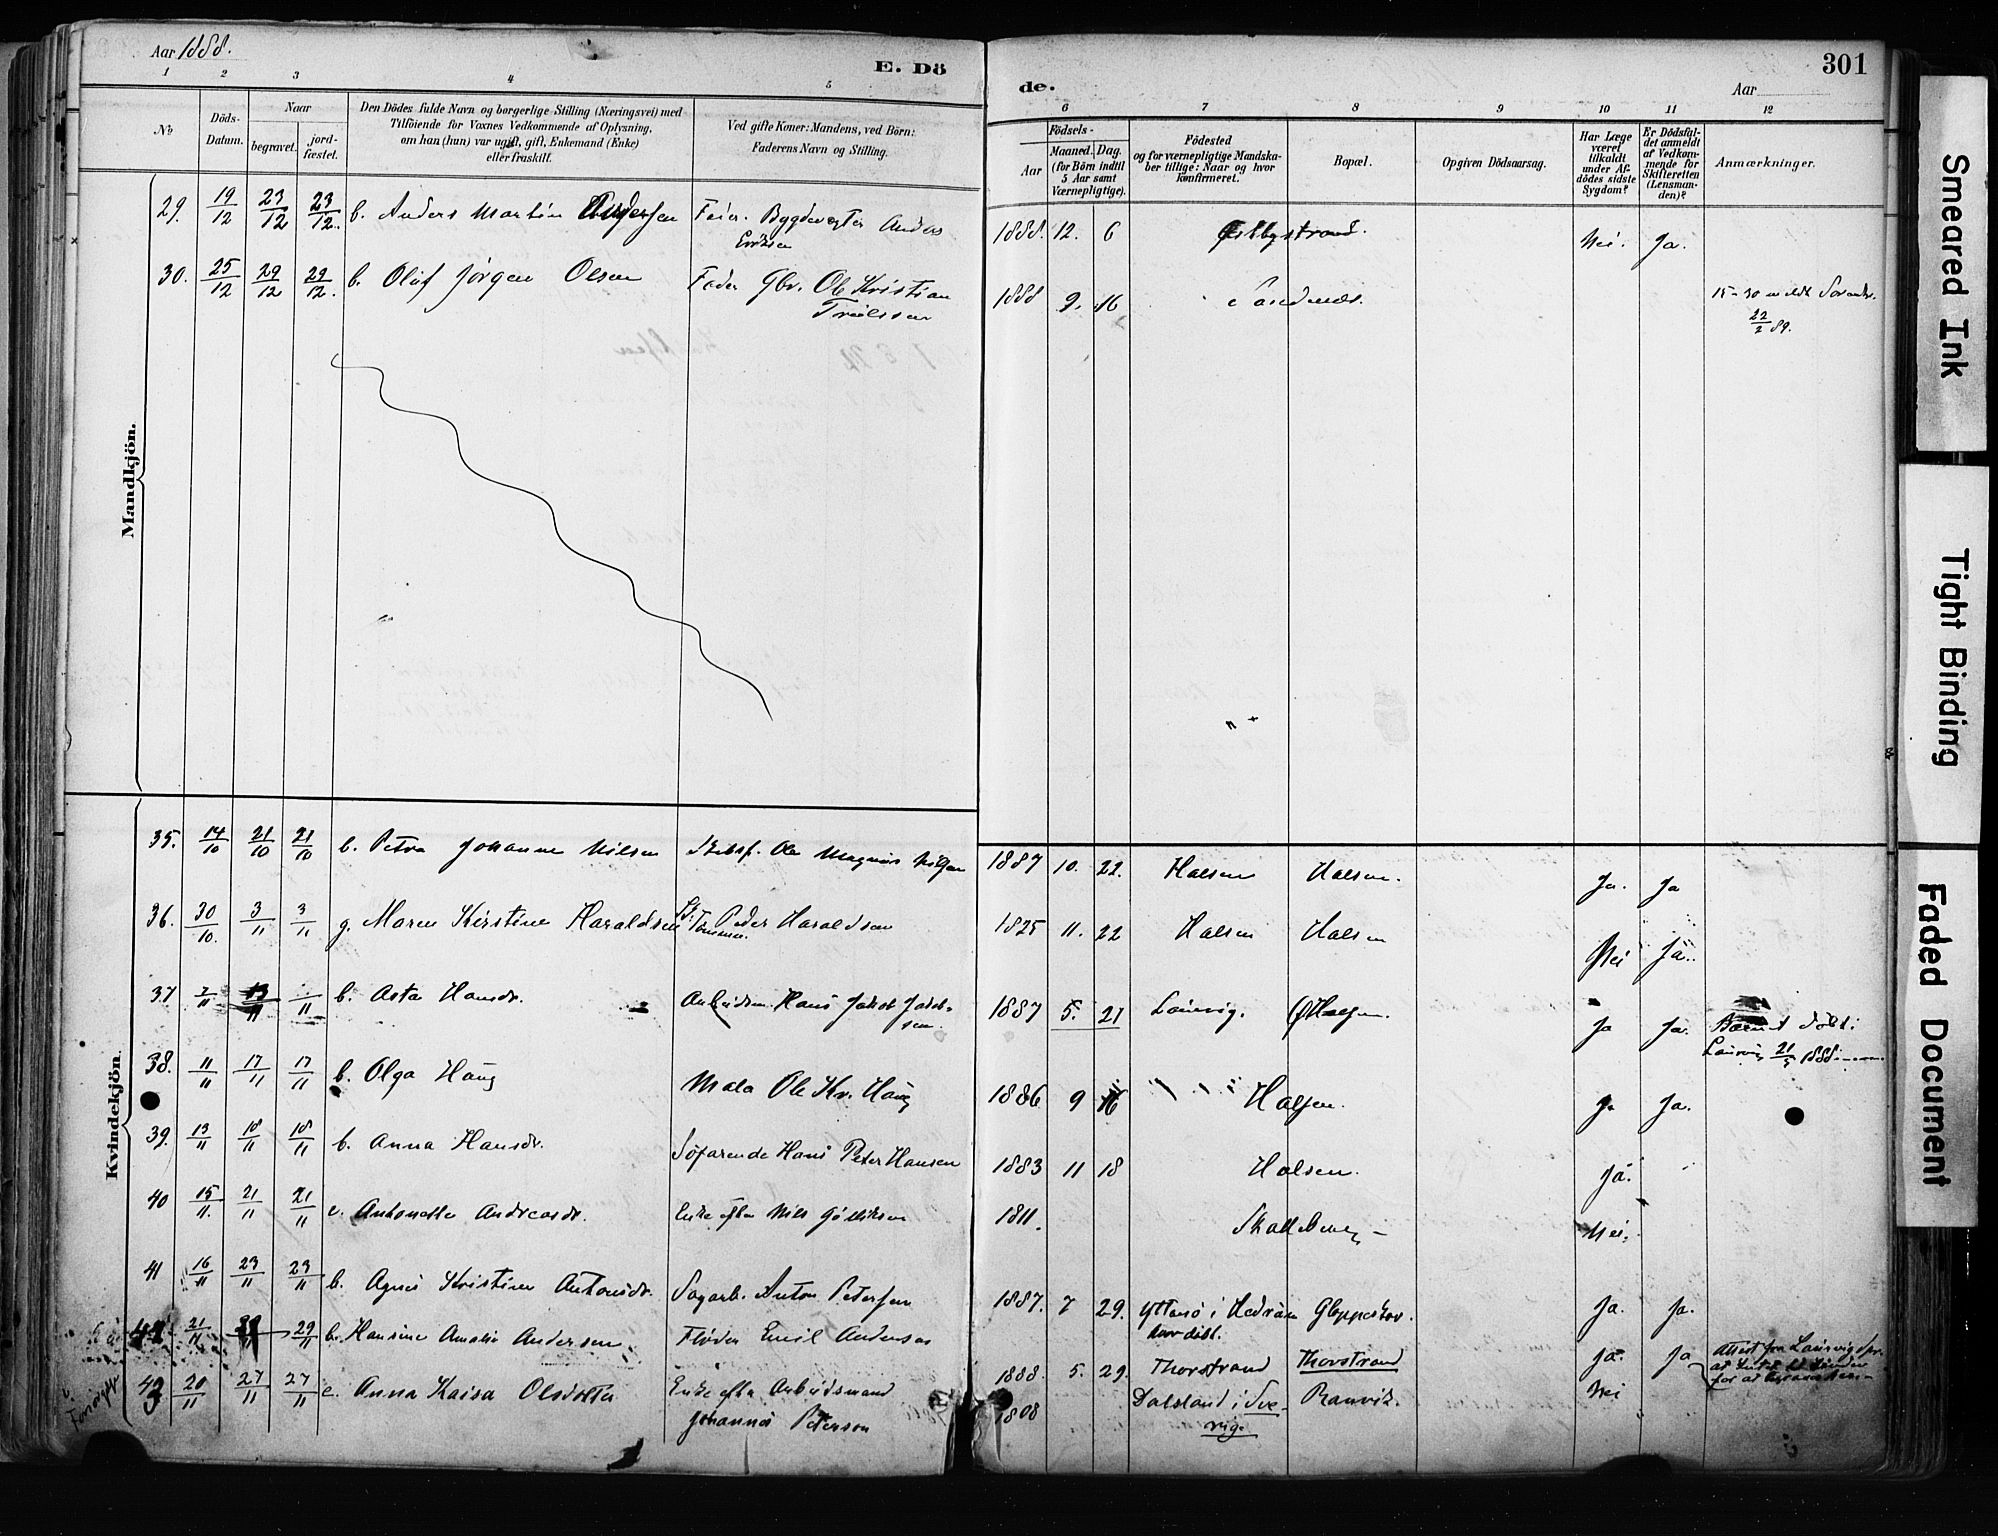 Aar 1888.
E. Dö
de.
Aar
301
1 2 3 4 5 6 7 8 9 10 11 12
No
Döds-Datum.
Naar
begravet.
jord-fæstet.
Den Dödes fulde Navn og borgerlige Stilling (Næringsvei) med
Tilföiende for Voxnes Vedkommende af Oplysning,
om han (hun) var ugift, gift, Enkemand (Enke)
eller fraskilt.
Ved gifte Koner: Mandens, ved Börn:
Faderens Navn og Stilling.
Födsels-
Aar
Maaned. Dag.
(for Börn indtil
5 Aar samt
Værnepligtige).
Födested
og for værnepligtige Mandska-
ber tillige: Naar og hvor
konfirmeret.
Bopæl.
Opgiven Dödsaarsag.
Har Læge
været
tilkaldt
under Af-
dödes sidste
Sygdom?
Er Dödsfal-
det anmeldt
af Vedkom-
mende for
Skifteretten
(Lensman-
den)?
Anmærkninger.
Mandkjön.
29. 19/12 23/12 23/12 b. Anders Martin Andersen Fader. Bygdevægter Anders
Eriksen
1888. 12. 6 Østbystrand. Nei. Ja.
30. 25/12 29/12 29/12. b. Oluf Jörgen Olsen Fader Gbr. Ole Kristian
Truelssen
1888 9. 16 Sandnæs. 15-30 meldt Sorenskr.
22/2 89.
Kvindekjön.
35. 14/10 21/10 21/10 b. Petra Johanne Nilsen Ole Magnus Nilsen 1887 10. 22. Halsen Halsen. Ja. Ja
36. 30/10. 3/11 3/11 g. Maren Kirstine Haraldsen Tömm. Peder Haraldsen 1825 11. 22 Halsen Halsen Nei Ja.
37 7/11 13/11 /11 b. Asta Hansdr. Arbeidsm. Hans Jakob Jakob-
sen. 1887 5. 21 Laurvig. Halsen. Ja Ja. Barnet döbt i
Laurvig 21/5 1888.
38. 11/11 17/11 17/11 b. Olga Haug Male Ole Kr. Haug 1886 9 16 Halsen. Ja Ja.
39. 13/11 18/11 18/11 b. Anna Hansdr. Söfarende Hans Peter Hansen 1883 11 18 Halsen. Ja.
40 15/11. 21/11 21/11 e. Antonette Andreasdr. Enke efter Nils Gulliksen 1811. Skalleberg Nei.
41 16/11 23/11 23/11 b. Agnes Kristine Antonsdr. Sagarb. Anton Petersen 1887. 7 29. Yttersö i Hedrum
hvor döbt. Gloppeskov. Ja. Ja.
42 21/11 29/11 b. Hansine Amalie Andersen Flöder Emil Andersen 1888. 5. 29. Thorstrand Thorstrand Ja. Ja Attest fra Laurvig
at Intet er til Hinder
for at
43 20/11 27/11 27/11 e. Anna Kaisa Olsdotter Enke efter Arbeidsmand
Johannes Peterson 1808 Dalsland i Sve-
rige Ranvik. Nei
Smeared Ink
Tight Binding
Faded Document